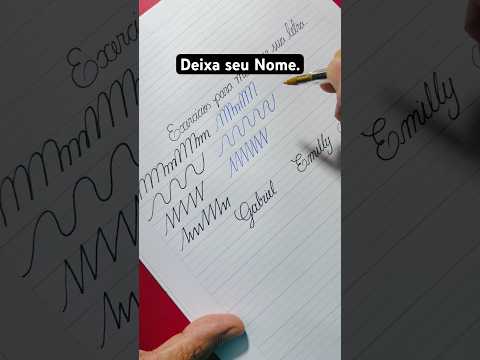 Deixa seu Nome.
Exercícios para sua letra.
Gabriel
Emilly
Emilly